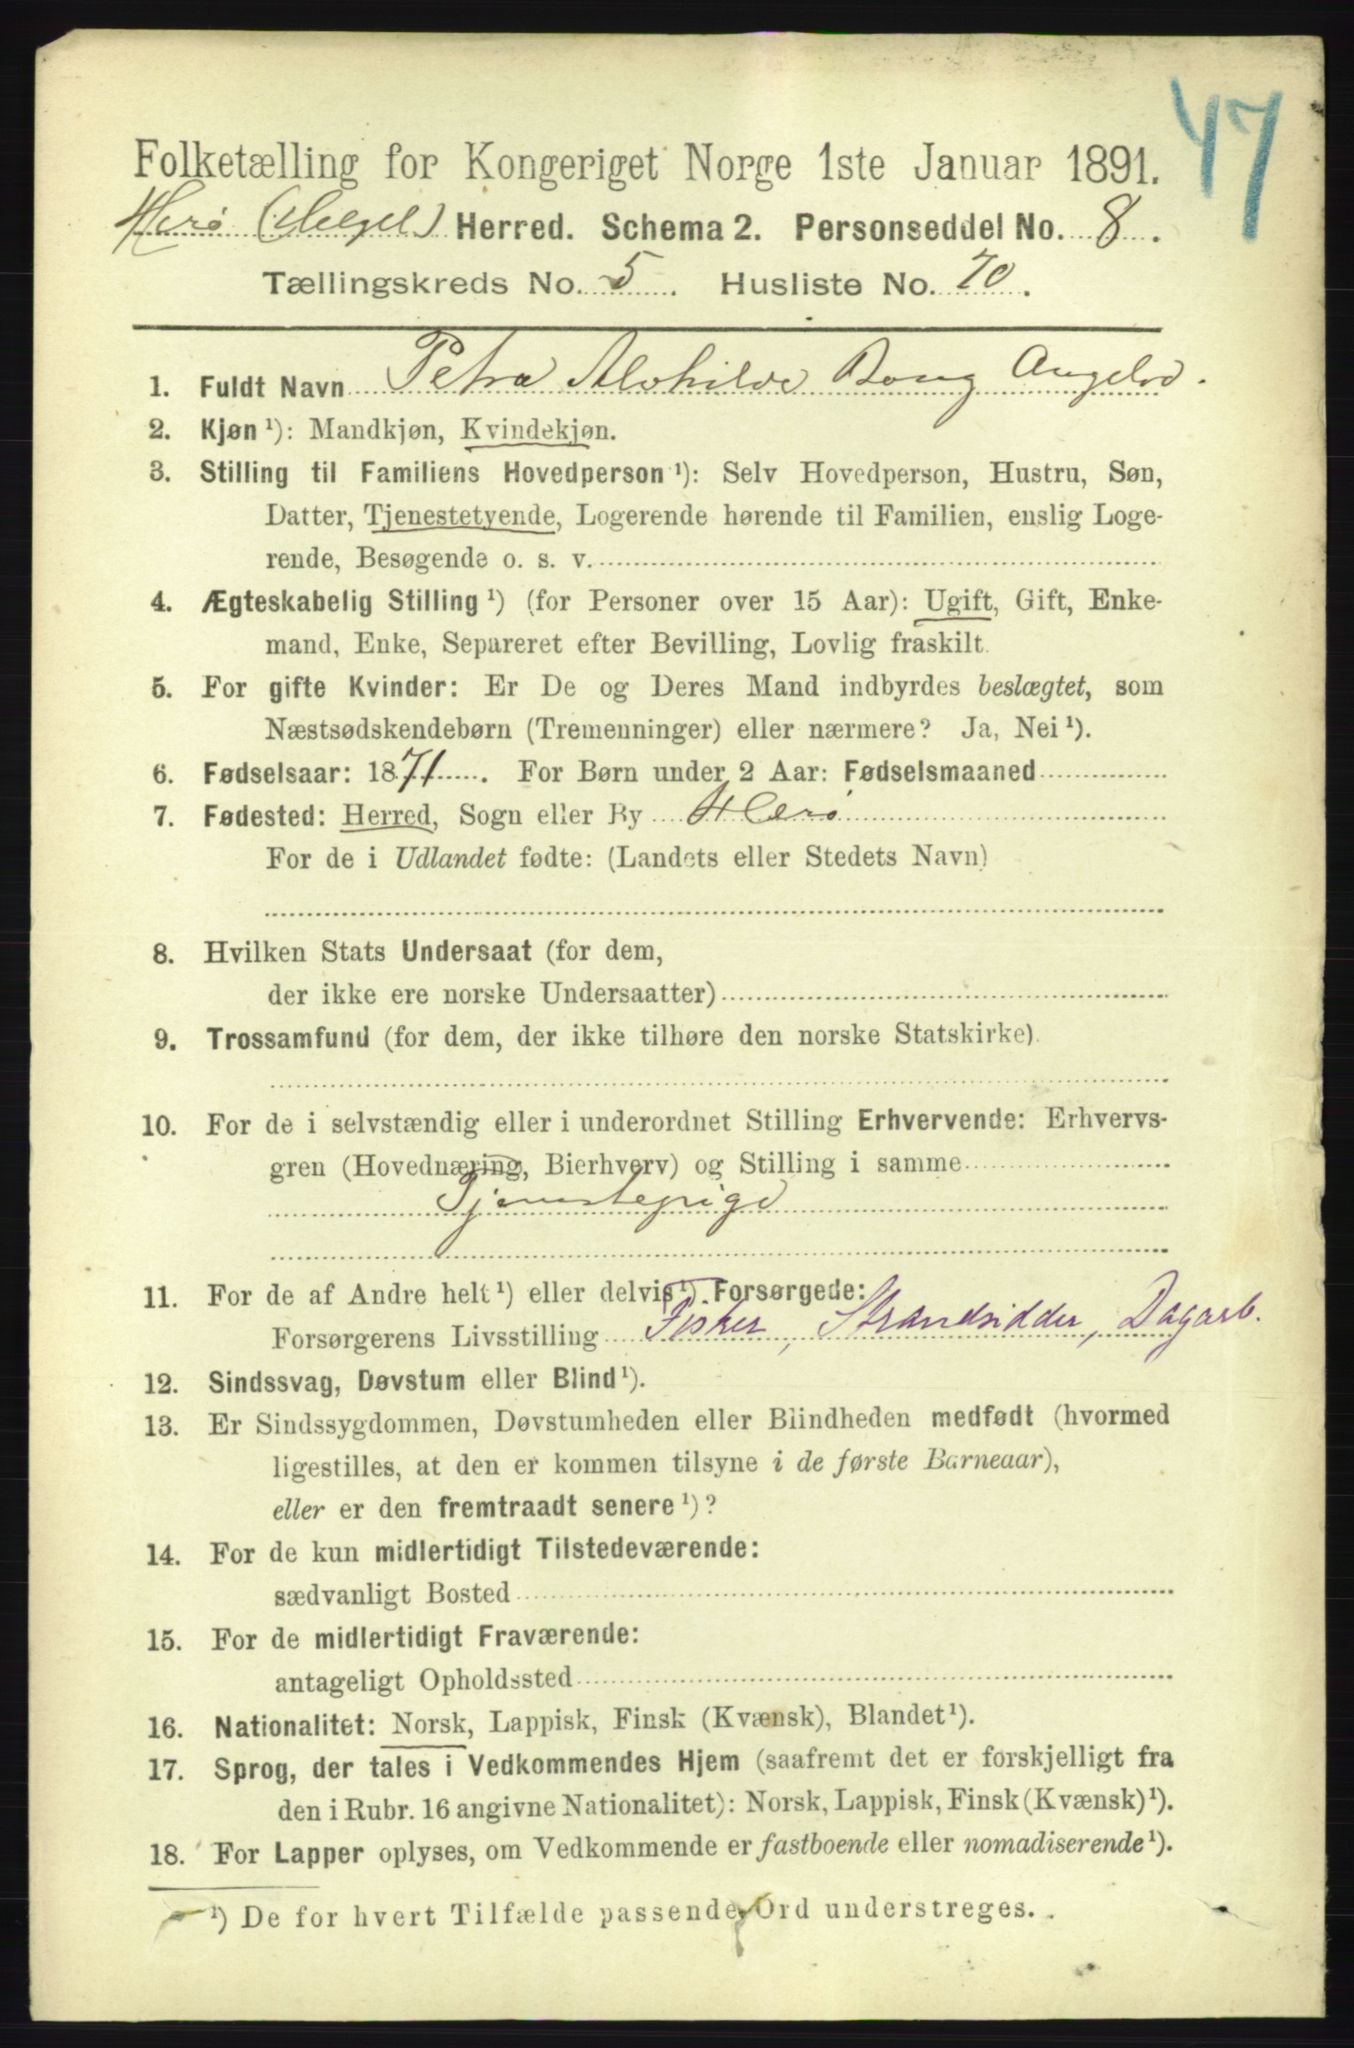 47
Folketælling for Kongeriget Norge 1ste Januar 1891.
Herø (Helgel) Herred. Schema 2. Personseddel No. 8.
Tællingskreds No. 5. Husliste No. 70.
1. Fuldt Navn Petra Alvhilde
2. Kjøn ¹): Mandkjøn, Kvindekjøn.
3. Stilling til Familiens Hovedperson ¹): Selv Hovedperson, Hustru, Søn,
Datter, Tjenestetyende, Logerende hørende til Familien, enslig Loge-
rende, Besøgende o. s. v.
4. Ægteskabelig Stilling ¹) (for Personer over 15 Aar): Ugift, Gift, Enke-
mand, Enke, Separeret efter Bevilling, Lovlig fraskilt.
5. For gifte Kvinder: Er De og Deres Mand indbyrdes beslægtet, som
Næstsødskendebørn (Tremenninger) eller nærmere? Ja, Nei ¹).
6. Fødselsaar: 1871. For Børn under 2 Aar: Fødselsmaaned
7. Fødested: Herred, Sogn eller By Herø
For de i Udlandet fødte: (Landets eller Stedets Navn)
8. Hvilken Stats Undersaat (for dem,
der ikke ere norske Undersaatter)
9. Trossamfund (for dem, der ikke tilhøre den norske Statskirke).
10. For de i selvstændig eller i underordnet Stilling Erhvervende: Erhvervs-
gren (Hovednæring, Bierhverv) og Stilling i samme
Tjenestepige
11. For de af Andre helt ¹) eller delvis ¹) Forsørgede:
Forsørgerens Livsstilling Fisker, Strandsidder, Dagarb.
12. Sindssvag, Døvstum eller Blind ¹).
13. Er Sindssygdommen, Døvstumheden eller Blindheden medfødt (hvormed
ligestilles, at den er kommen tilsyne i de første Barneaar),
eller er den fremtraadt senere ¹)?
14. For de kun midlertidigt Tilstedeværende:
sædvanligt Bosted
15. For de midlertidigt Fraværende:
antageligt Opholdssted
16. Nationalitet: Norsk, Lappisk, Finsk (Kvænsk), Blandet ¹).
17. Sprog, der tales i Vedkommendes Hjem (saafremt det er forskjelligt fra
den i Rubr. 16 angivne Nationalitet): Norsk, Lappisk, Finsk (Kvænsk) ¹).
18. For Lapper oplyses, om Vedkommende er fastboende eller nomadiserende ¹).
¹) De for hvert Tilfælde passende Ord understreges.